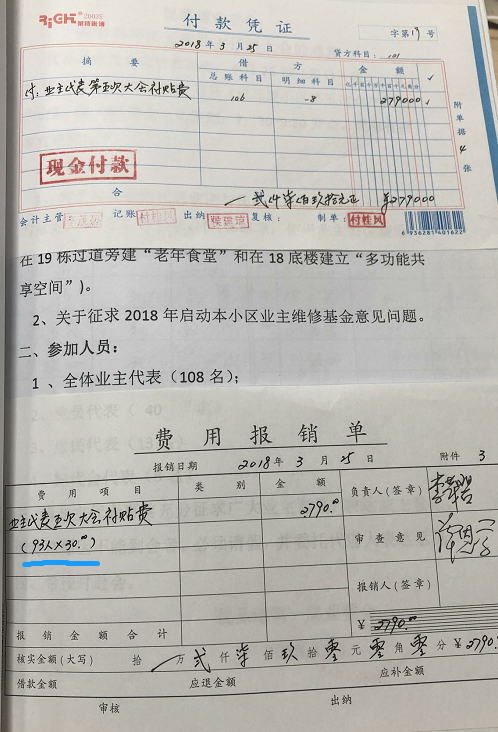 RiCH 2003S
付款凭证
字第 19 号
2018 年 3 月 25 日
贷方科目: 101
摘要
借方
金额
✓
总账科目
明细科目
亿千百十万千百十元角分
付:业主代表第五次大会补贴费
106
-8
279000
附单据 4 张
现金付款
合
一弍仟柒佰玖拾元正
¥279000
会计主管
记账 付桂凤
出纳
复核:
制单: 付桂凤
6 936281 401622
在 19 栋过道旁建“老年食堂”和在 18 底楼建立“多功能共
享空间”)。
2、关于征求 2018 年启动本小区业主维修基金意见问题。
二、参加人员:
1 、全体业主代表(108 名);
费用报销单
报销日期 2018 年 3 月 25 日
附件 3
费用项目
类别
金额
负责人(签章)
业主代表五次大会补贴费
2790.00
(93人×30.00)
审查意见
报销人(签章)
报销金额合计
¥ 2790.00
核实金额(大写) 拾 万 弍 仟 柒 佰 玖 拾 零 元 零 角 零 分 ¥2790.
借款金额
应退金额
应补金额
审核
出纳